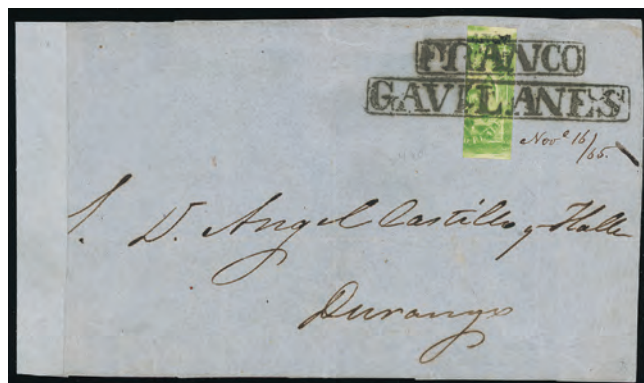 FRANCO
GAVILANES
Nov.e 16/65.
S. D. Angel Castillo y Valle
Durango